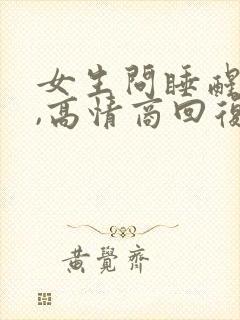 女生問睡醒
,高情商回復
黃覺齊